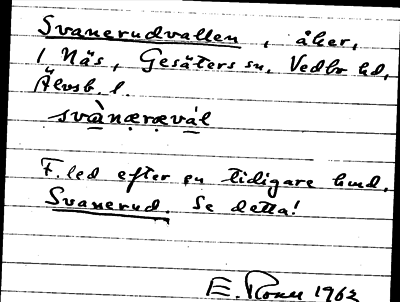 Svanerudvallen, åker,
1 Näs, Gesäters sn, Vedbo hd,
Älvsb. l.
svànærævál
F. led efter en tidigare hmd.
Svanerud. Se detta!
E. Rosen 1962